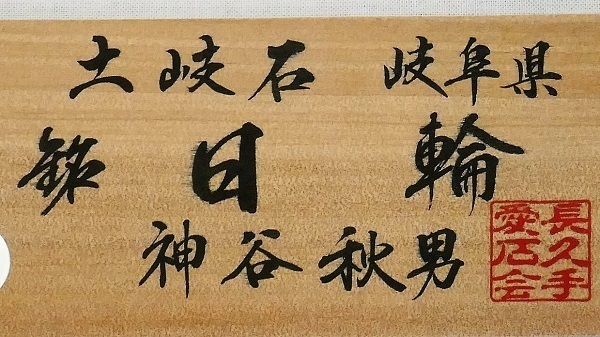 土岐石 岐阜県
銘 日輪
神谷秋男
長久手
愛石会